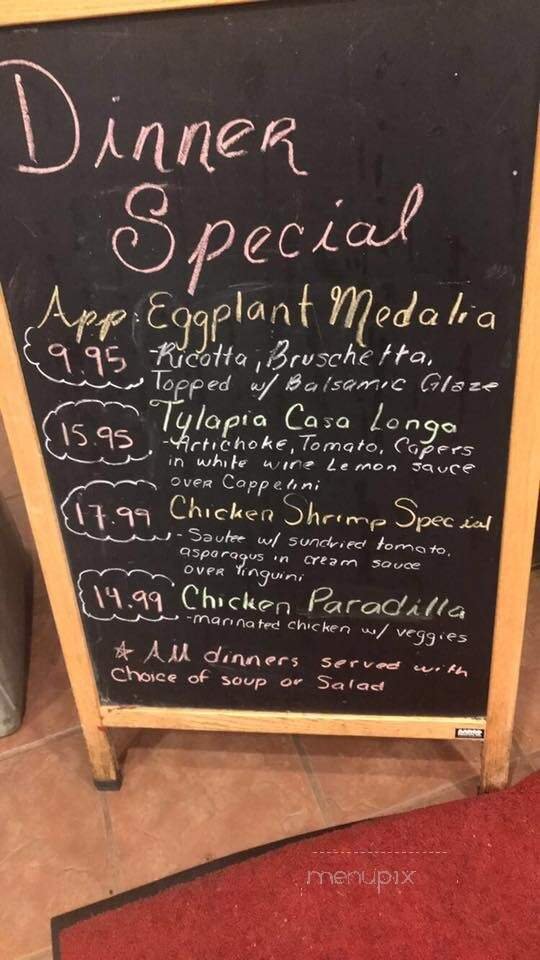 Dinner
Special
App: Eggplant Medalia
9.95 -Ricotta, Bruschetta,
Topped w/ Balsamic Glaze
Tylapia Casa Longa
15.95 -Artichoke, Tomato, Capers
in white wine Lemon sauce
over Cappelini
17.99 Chicken Shrimp Special
- Sautee w/ sundried tomato,
asparagus in cream sauce
over linguini
14.99 Chicken Paradilla
-marinated chicken w/ veggies
☆ All dinners served with
choice of soup or Salad
menupix